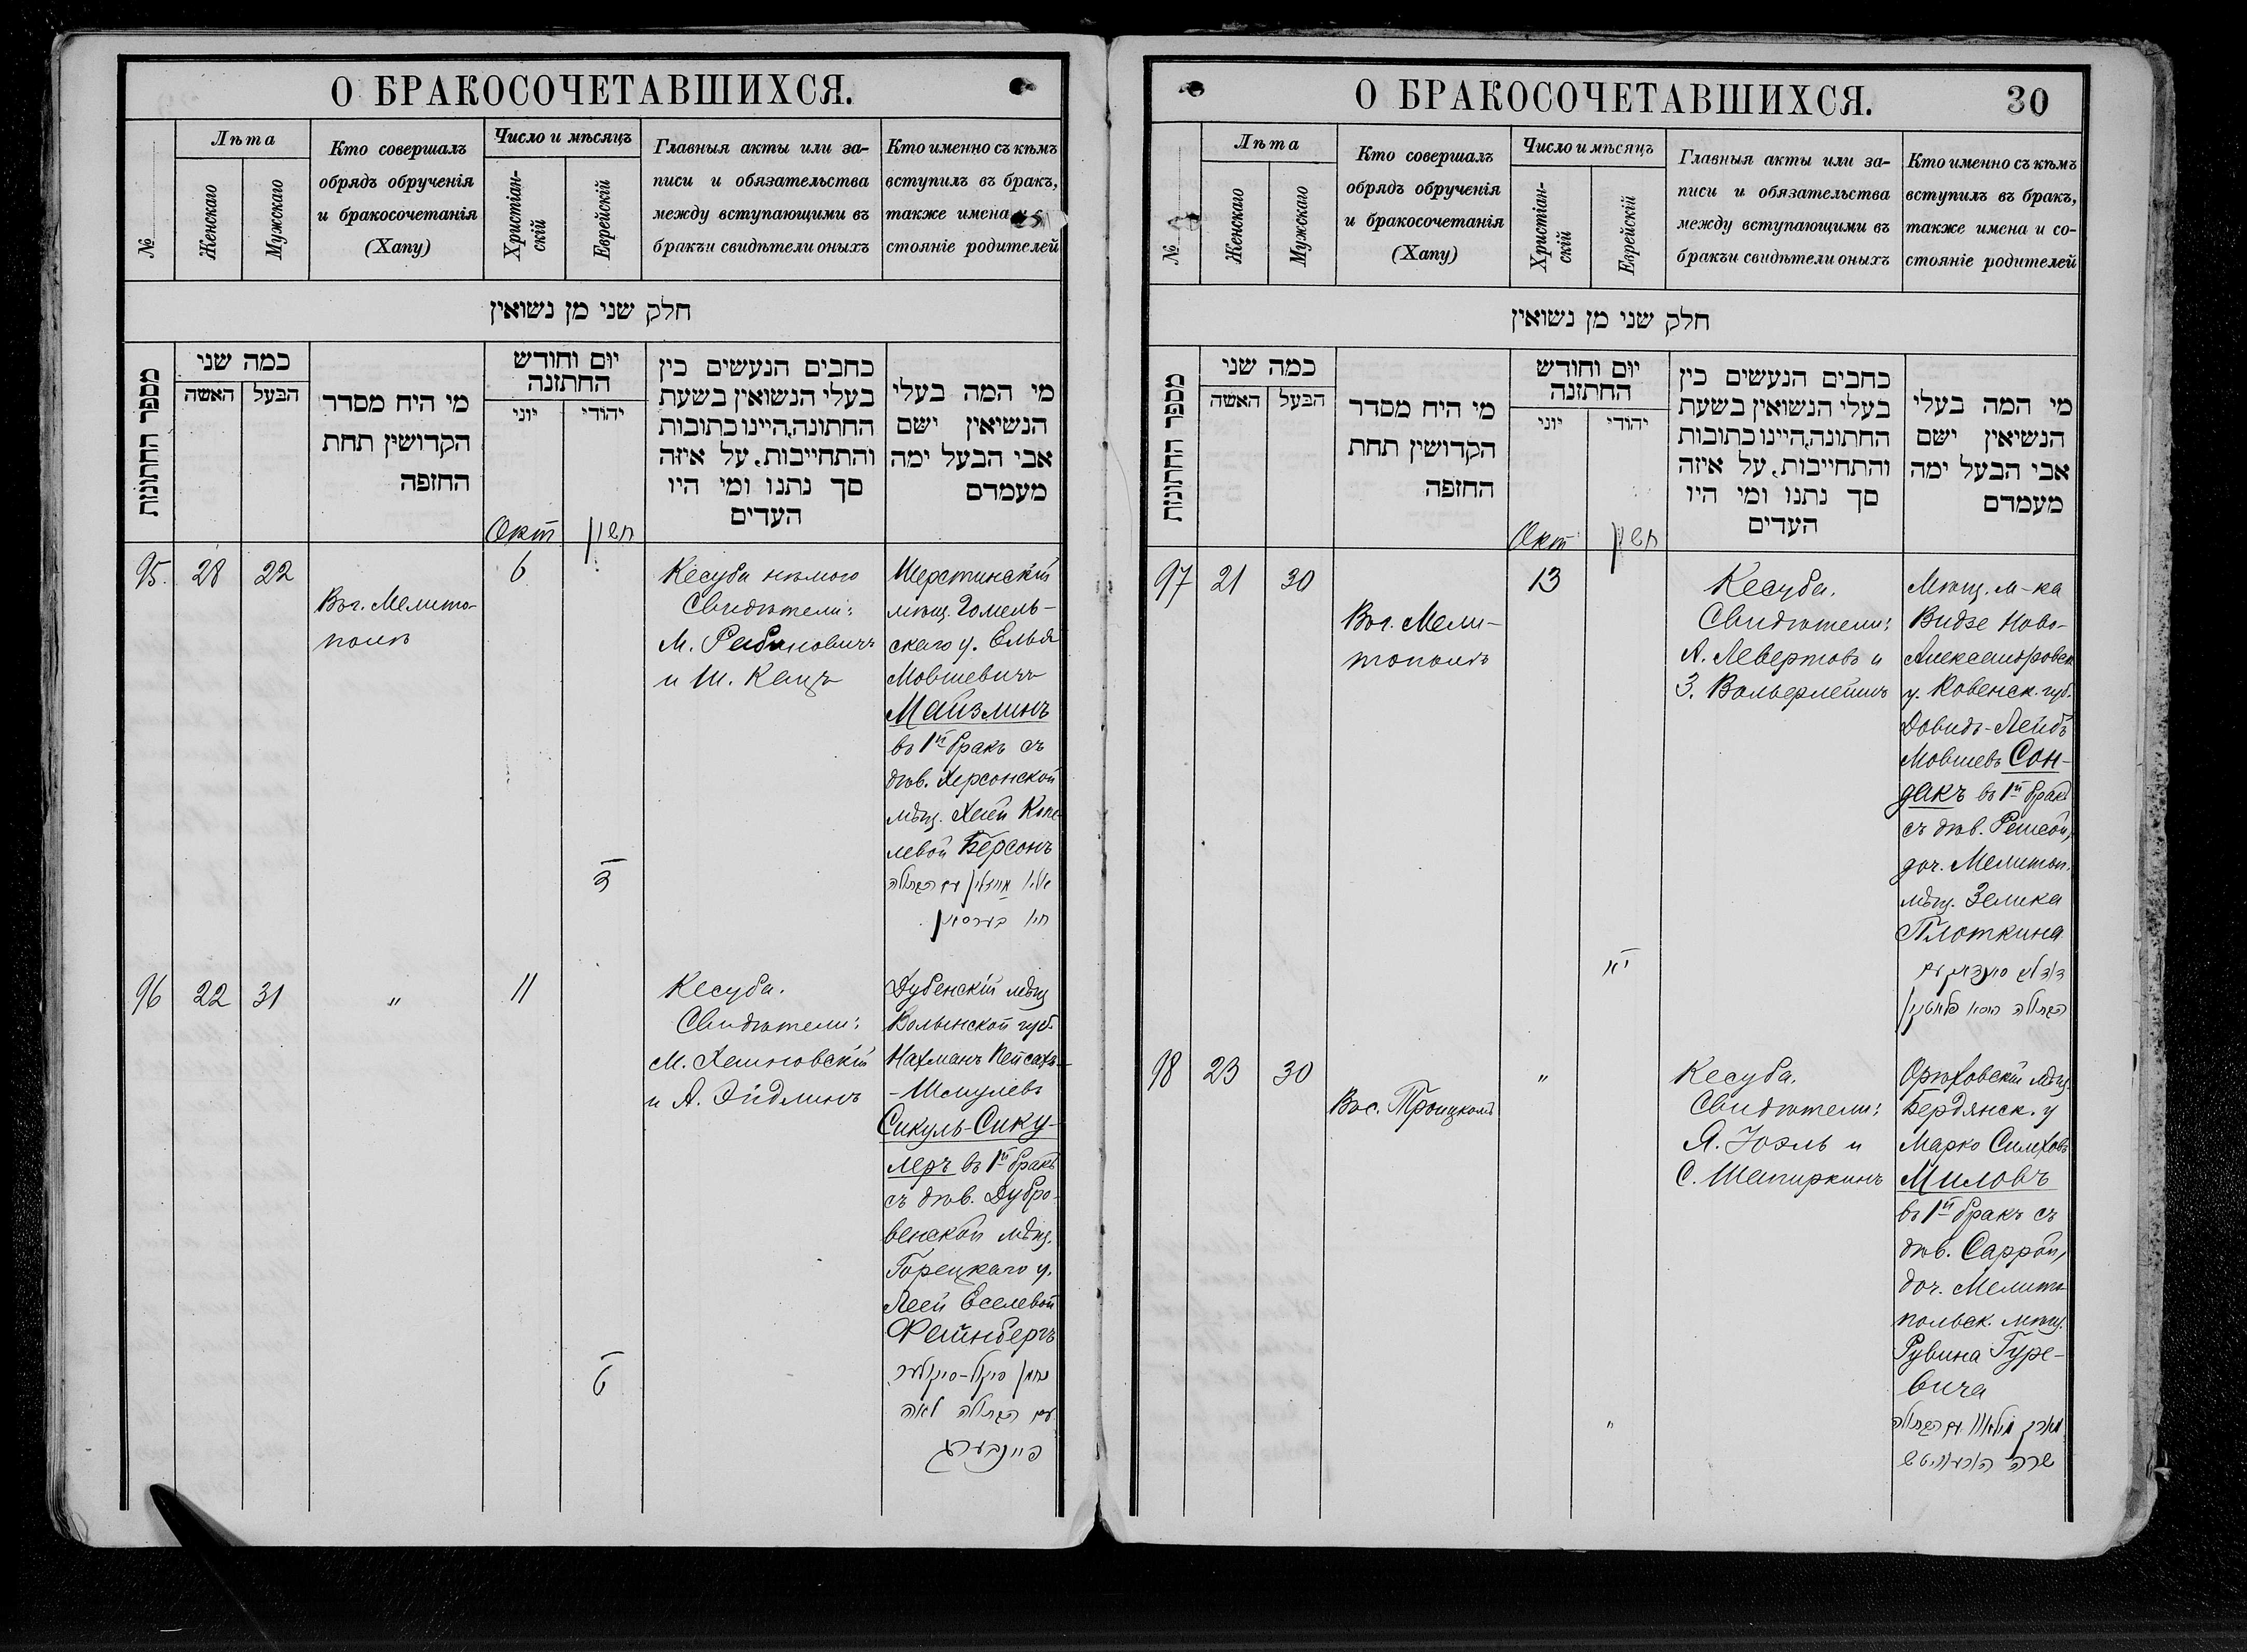 О БРАКОСОЧЕТАВШИХСЯ.
№
Лѣта
Женскаго
Мужскаго
Кто совершалъ
обрядъ обрученія
и бракосочетанія
(Хапу)
Число и мѣсяцъ
Христіан-
скій
Еврейскій
Главныя акты или за-
писи и обязательства
между вступающими въ
бракъи свидѣтели оныхъ
Кто именно съ кѣмъ
вступилъ въ бракъ,
также имена
стояніе родителей
חלק שני מן נשואין
מספר החתונות
כמה שני
האשה
הבעל
מי היח מסדר
הקדושין תחת
החופה
יום וחודש
החתונה
יוני
יהודי
Окт
חשון
כתבים הנעשים בין
בעלי הנשואין בשעת
החתונה, היינו כתובות
והתחייבות, על איזה
סך נתנו ומי היו
העדים
מי המה בעלי
הנשיאין ישם
אבי הבעל ימה
מעמדם
95.
28
22
Въ г. Мелито-
полѣ
6
ד
Кесуба
Свидѣтели:
М. Рабиновичъ
и Ш. Кацъ
Шерстинскій
мѣщ. Гомель-
скаго у. Елья
Мовшевичъ
Майзлинъ
въ 1й бракъ съ
дѣв. Херсонской
мѣщ. Хаей Копе-
левой Берсонъ
אליו מייזלין עם הבתולה
חיו בערסאן
96
22
31
"
11
ט
Кесуба.
Свидѣтели:
М. Хашновскій
и А. Эйдлинъ
Дубенскій мѣщ
Волынской губ.
Нахманъ Пейсахъ-
-Шмулевъ
Сикуль-Сику-
леръ въ 1й бракъ
съ дѣв. Дубро-
венской мѣщ.
Горецкаго у.
Леей Еселевой
Файнбергъ
נחמן סיקל-סיקלער
עם הבתולה לאה
פיינבערג
О БРАКОСОЧЕТАВШИХСЯ.
30
№
Лѣта
Женскаго
Мужскаго
Кто совершалъ
обрядъ обрученія
и бракосочетанія
(Хапу)
Число и мѣсяцъ
Христіан-
скій
Еврейскій
Главныя акты или за-
писи и обязательства
между вступающими въ
бракъи свидѣтели оныхъ
Кто именно съ кѣмъ
вступилъ въ бракъ,
также имена и со-
стояніе родителей
חלק שני מן נשואין
מספר החתונות
כמה שני
האשה
הבעל
מי היח מסדר
הקדושין תחת
החופה
יום וחודש
החתונה
יוני
יהודי
Окт
חשון
כתבים הנעשים בין
בעלי הנשואין בשעת
החתונה, היינו כתובות
והתחייבות, על איזה
סך נתנו ומי היו
העדים
מי המה בעלי
הנשיאין ישם
אבי הבעל ימה
מעמדם
97
21
30
Въ г. Мели-
тополѣ
13
יא
Кесуба.
Свидѣтели:
А. Левертовъ и
З. Вольерлейнъ
Мѣщ. м-ка
Видзе Ново-
Александровск
у. Ковенск. губ.
Довидъ-Лейбъ
Мовшевъ Сон-
дакъ въ 1й бракъ
съ дѣв. Рашей,
доч. Мелитоп.
мѣщ. Зелика
Плоткина
סונדאק עם
הבתולה פלאטקין
98
23
30
Въ с. Троицкомъ
"
"
Кесуба.
Свидѣтели:
Я. Іоэль и
С. Шапиркинъ
Орѣховскій мѣщ.
Бердянск. у
Марко Симховъ
Миловъ
въ 1й бракъ съ
дѣв. Саррой,
доч. Мелито-
польск. мѣщ.
Рувина Гуре-
вича
מארק מילאוו עם הבתולה
שרה הורעוויטש